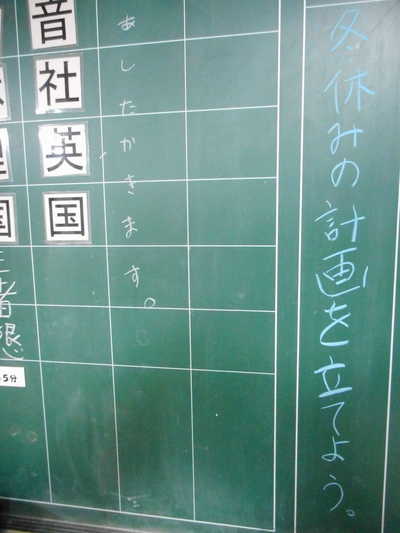 冬休みの計画を立てよう。
あしたかきます。
音
社
英
国
国
者懇
5分